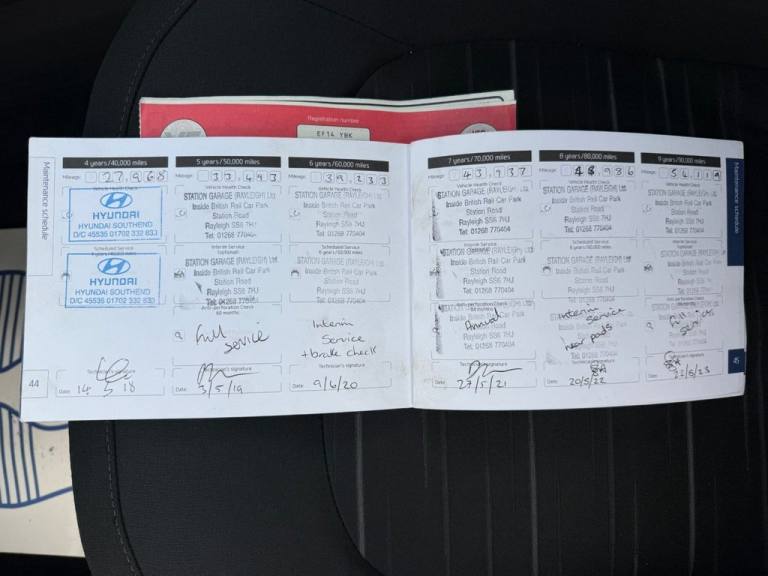 Registration number
EF14 YBK
Maintenance schedule
4 years/40,000 miles
Mileage 27,968
Vehicle Health Check
HYUNDAI
HYUNDAI SOUTHEND
D/C 45536 01702 332 833
Scheduled Service
4 years/40,000 miles
HYUNDAI
HYUNDAI SOUTHEND
D/C 45536 01702 332 833
Technician's signature
Date: 14 5 18
44
5 years/50,000 miles
Mileage 33,443
Vehicle Health Check
STATION GARAGE (RAYLEIGH) Ltd
Inside British Rail Car Park
Station Road
Rayleigh SS6 7HJ
Tel: 01268 770404
Interim Service
(optional)
STATION GARAGE (RAYLEIGH) Ltd
Inside British Rail Car Park
Station Road
Rayleigh SS6 7HJ
Tel: 01268 770404
Anti-perforation Check
60 months
Full
Service
Technician's signature
Date: 3/5/19
6 years/60,000 miles
Mileage 39,233
Vehicle Health Check
STATION GARAGE (RAYLEIGH) Ltd
Inside British Rail Car Park
Station Road
Rayleigh SS6 7HJ
Tel: 01268 770404
Scheduled Service
6 years/60,000 miles
STATION GARAGE (RAYLEIGH) Ltd
Inside British Rail Car Park
Station Road
Rayleigh SS6 7HJ
Tel: 01268 770404
Interim
Service
+ brake check
Technician's signature
Date: 9/6/20
7 years/70,000 miles
Mileage 43,937
Vehicle Health Check
STATION GARAGE (RAYLEIGH) Ltd
Inside British Rail Car Park
Station Road
Rayleigh SS6 7HU
Tel: 01268 770404
Interim Service
STATION GARAGE (RAYLEIGH) Ltd
Inside British Rail Car Park
Station Road
Rayleigh SS6 7HU
Tel: 01268 770404
Anti-perforation Check
STATION GARAGE (RAYLEIGH) Ltd
Inside British Rail Car Park
Station Road
Rayleigh SS6 7HU
Tel: 01268 770404
Annual
Service
Technician's signature
Date: 27/5/21
8 years/80,000 miles
Mileage 48,986
Vehicle Health Check
STATION GARAGE (RAYLEIGH) Ltd
Inside British Rail Car Park
Station Road
Rayleigh SS6 7HU
Tel: 01268 770404
Scheduled Service
8 years/80,000 miles
STATION GARAGE (RAYLEIGH) Ltd
Inside British Rail Car Park
Station Road
Rayleigh SS6 7HU
Tel: 01268 770404
Interim
Service
rear pads
Technician's signature
Date: 20/5/22
9 years/90,000 miles
Mileage 54,119
Vehicle Health Check
STATION GARAGE (RAYLEIGH) Ltd
Inside British Rail Car Park
Station Road
Rayleigh SS6 7HU
Tel: 01268 770404
Interim Service
(optional)
STATION GARAGE (RAYLEIGH) Ltd
Inside British Rail Car Park
Station Road
Rayleigh SS6 7HU
Tel: 01268 770404
Anti-perforation Check
Full
Service
Technician's signature
Date: 22/5/23
Maintenance schedule
45